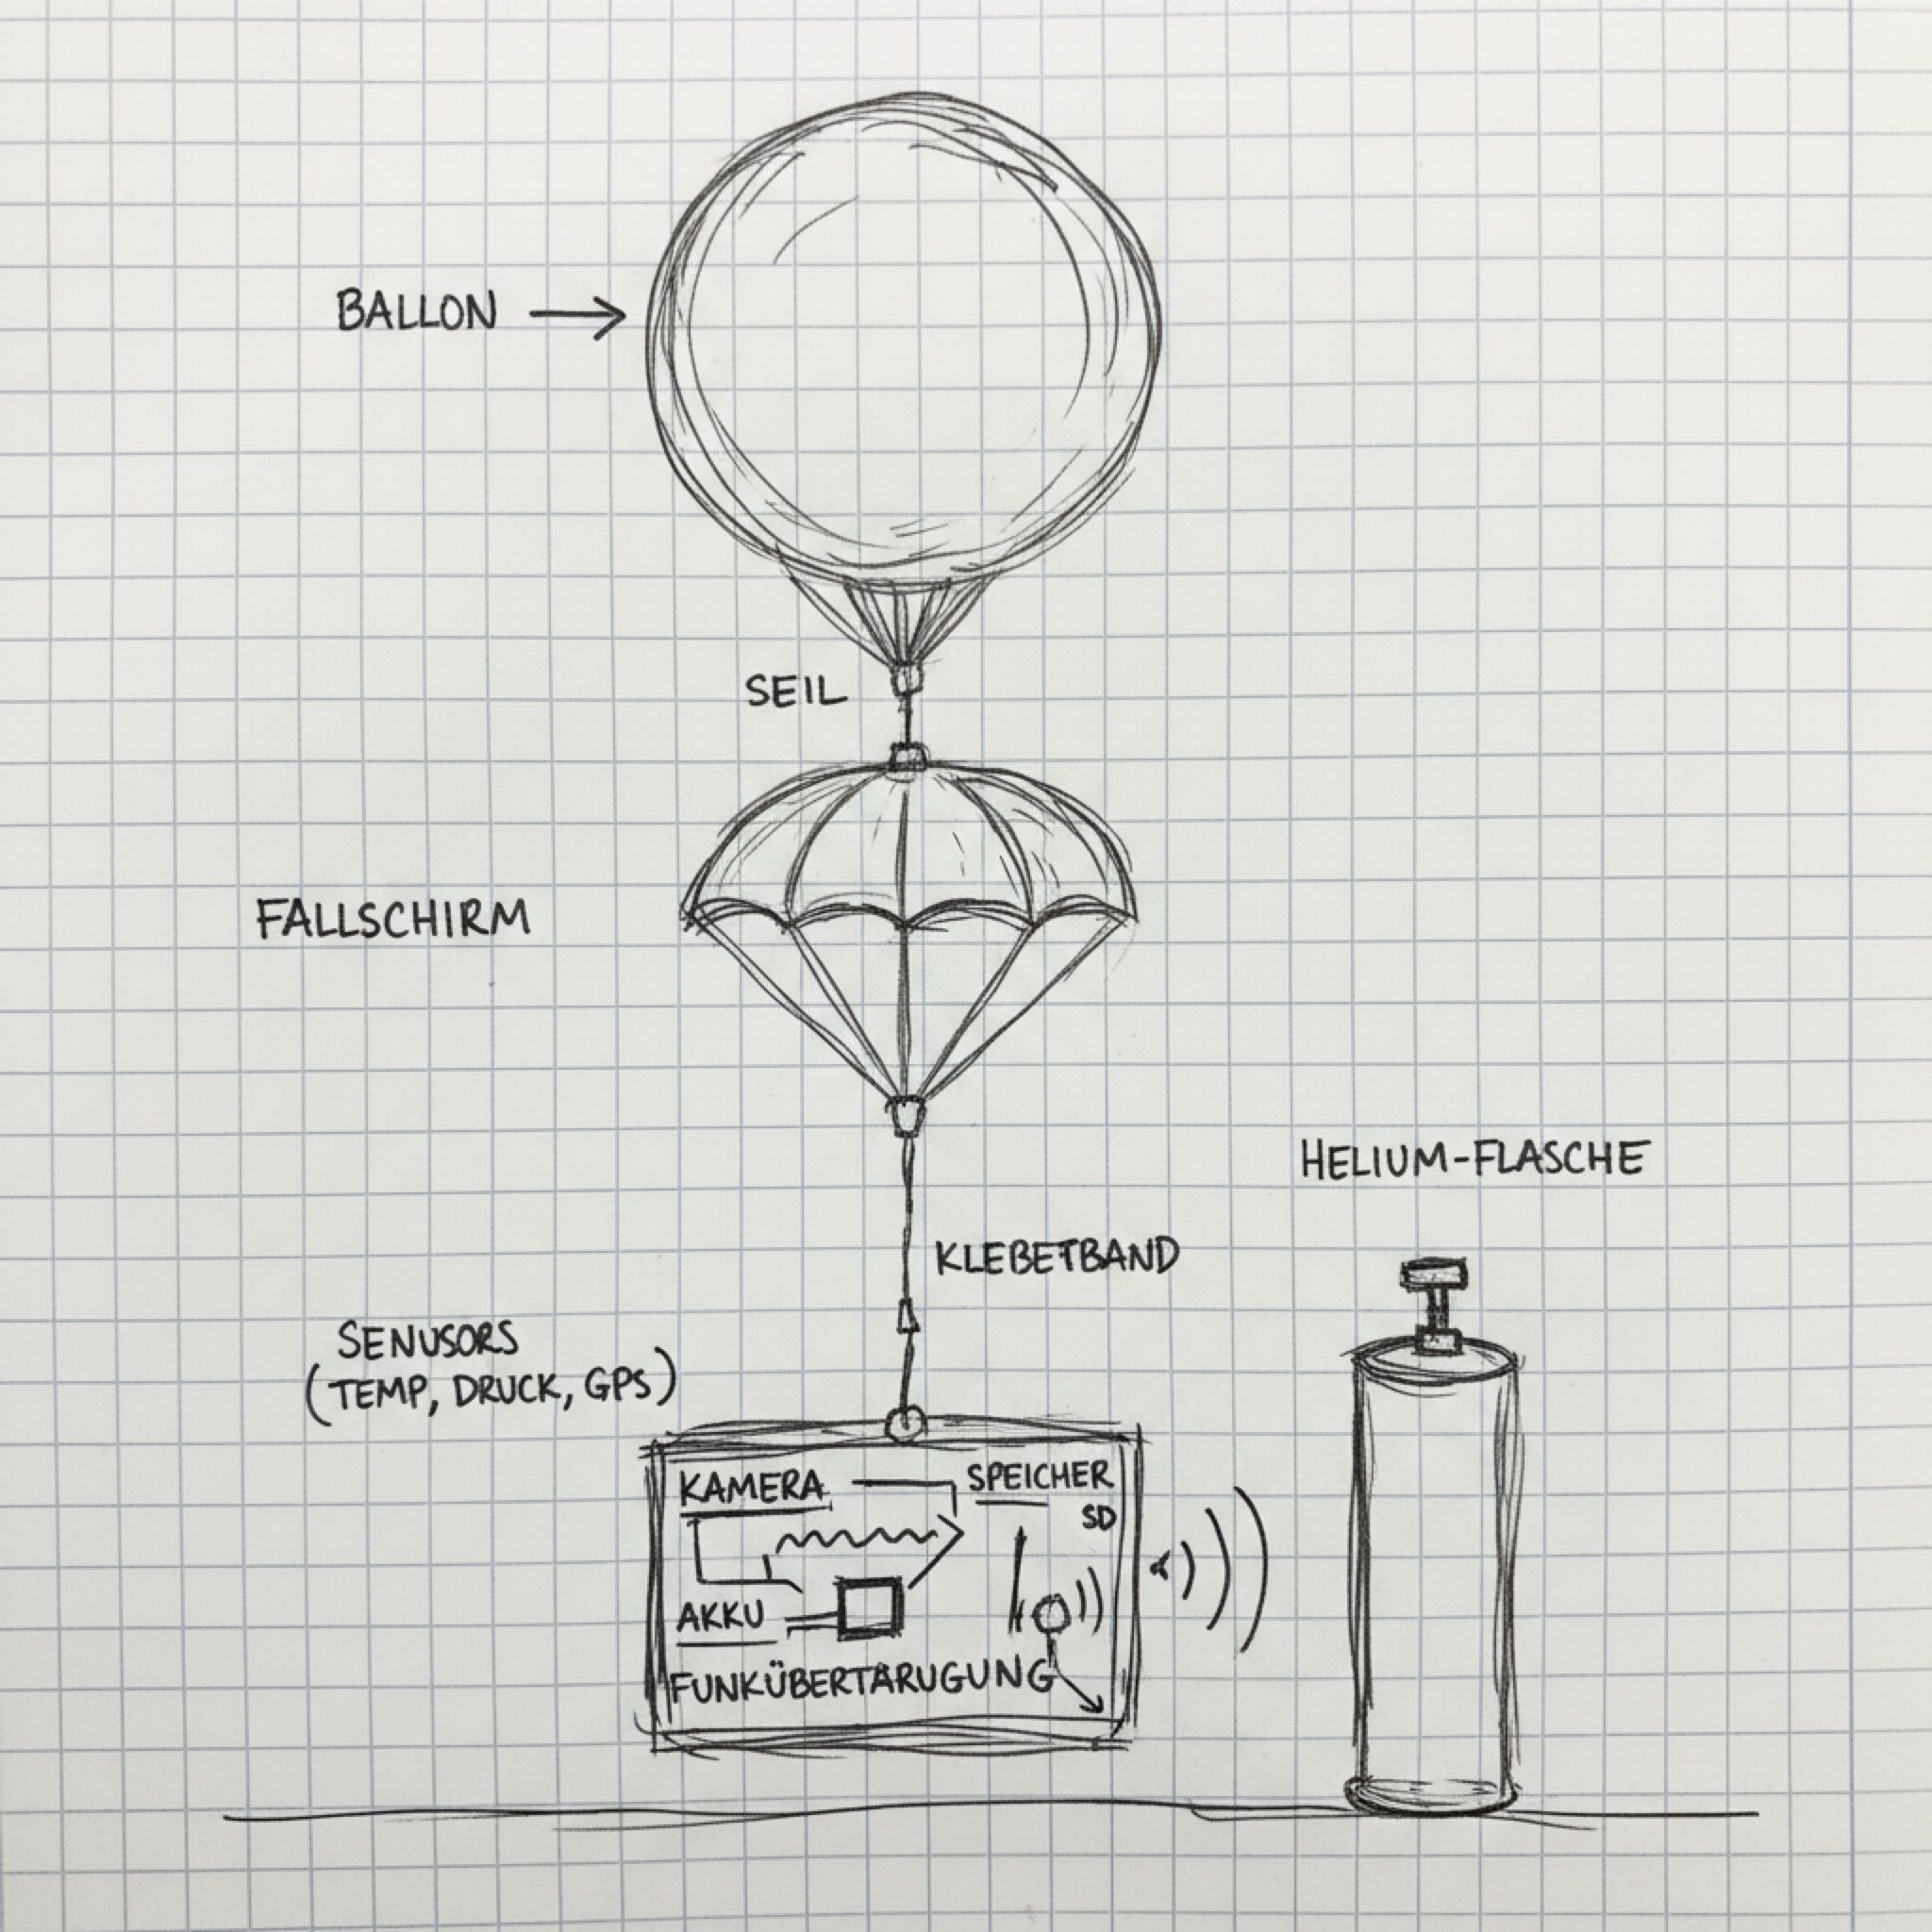 BALLON
SEIL
FALLSCHIRM
HELIUM-FLASCHE
KLEBETBAND
SENUSORS
(TEMP, DRUCK, GPS)
KAMERA
SPEICHER
SD
AKKU
FUNKÜBERTARUGUNG